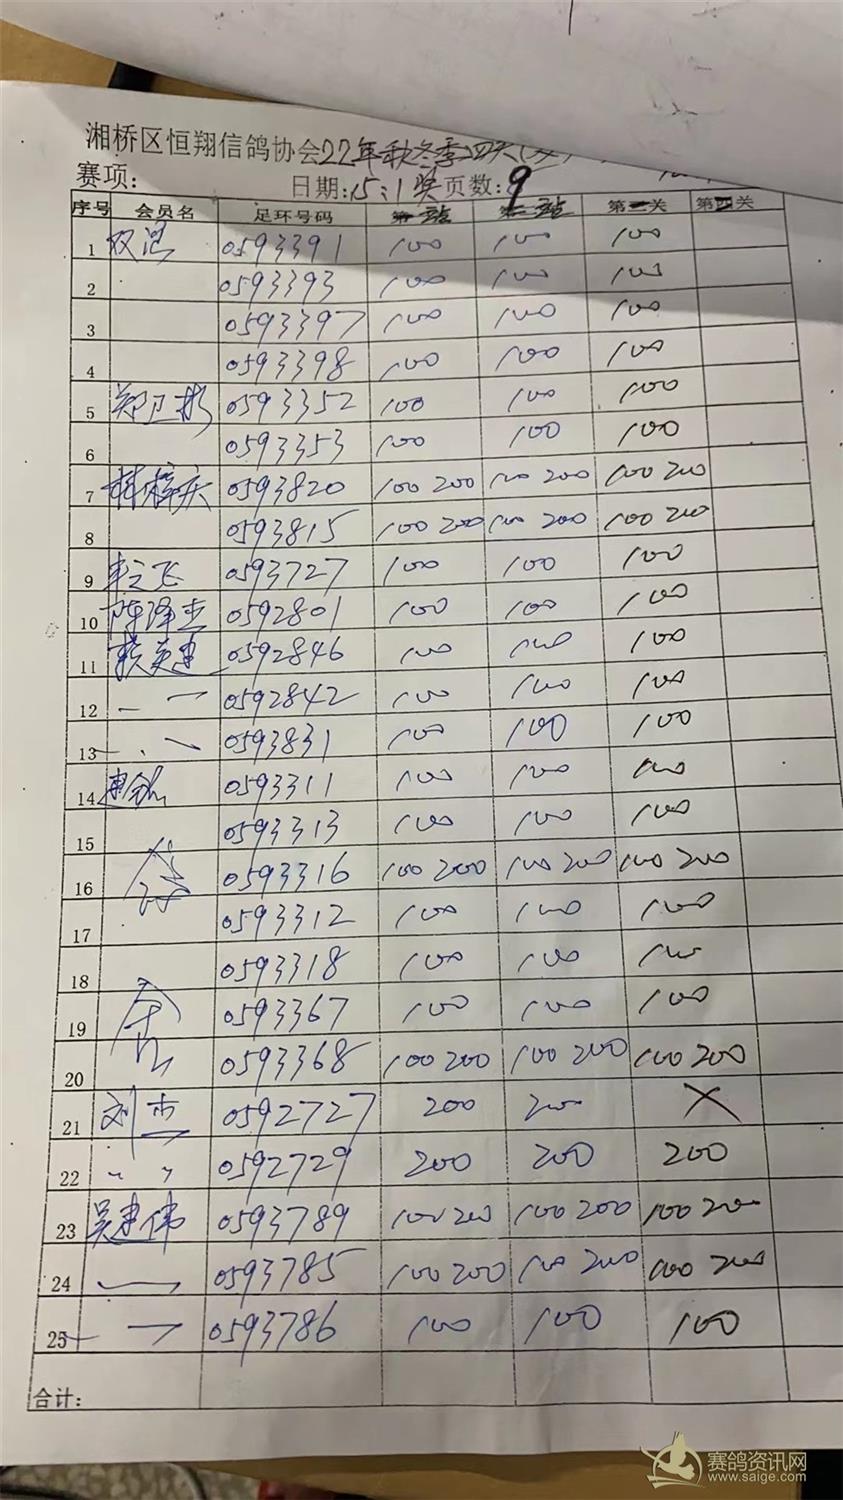 湘桥区恒翔信鸽协会22年秋冬季四关
赛项: 日期:15:1奖 页数:9
序号 会员名 足环号码 第一站 第二站 第三关 第四关
1 双恩 0593391 100 100 100
2 0593393 100 100 100
3 0593397 100 100 100
4 0593398 100 100 100
5 郑卫彬 0593352 100 100 100
6 0593353 100 100 100
7 林梓庆 0593820 100 200 100 200 100 200
8 0593815 100 200 100 200 100 200
9 飞 0593727 100 100 100
10 陈泽杰 0592801 100 100 100
11 0592846 100 100 100
12 0592842 100 100 100
13 0593831 100 100 100
14 0593311 100 100 100
15 0593313 100 100 100
16 0593316 100 200 100 200 100 200
17 0593312 100 100 100
18 0593318 100 100 100
19 0593367 100 100 100
20 0593368 100 200 100 200 100 200
21 刘杰 0592727 200 200 X
22 〃 0592729 200 200 200
23 吴建伟 0593789 100 200 100 200 100 200
24 0593785 100 200 100 200 100 200
25 0593786 100 100 100
合计:
赛鸽资讯网
www.saige.com